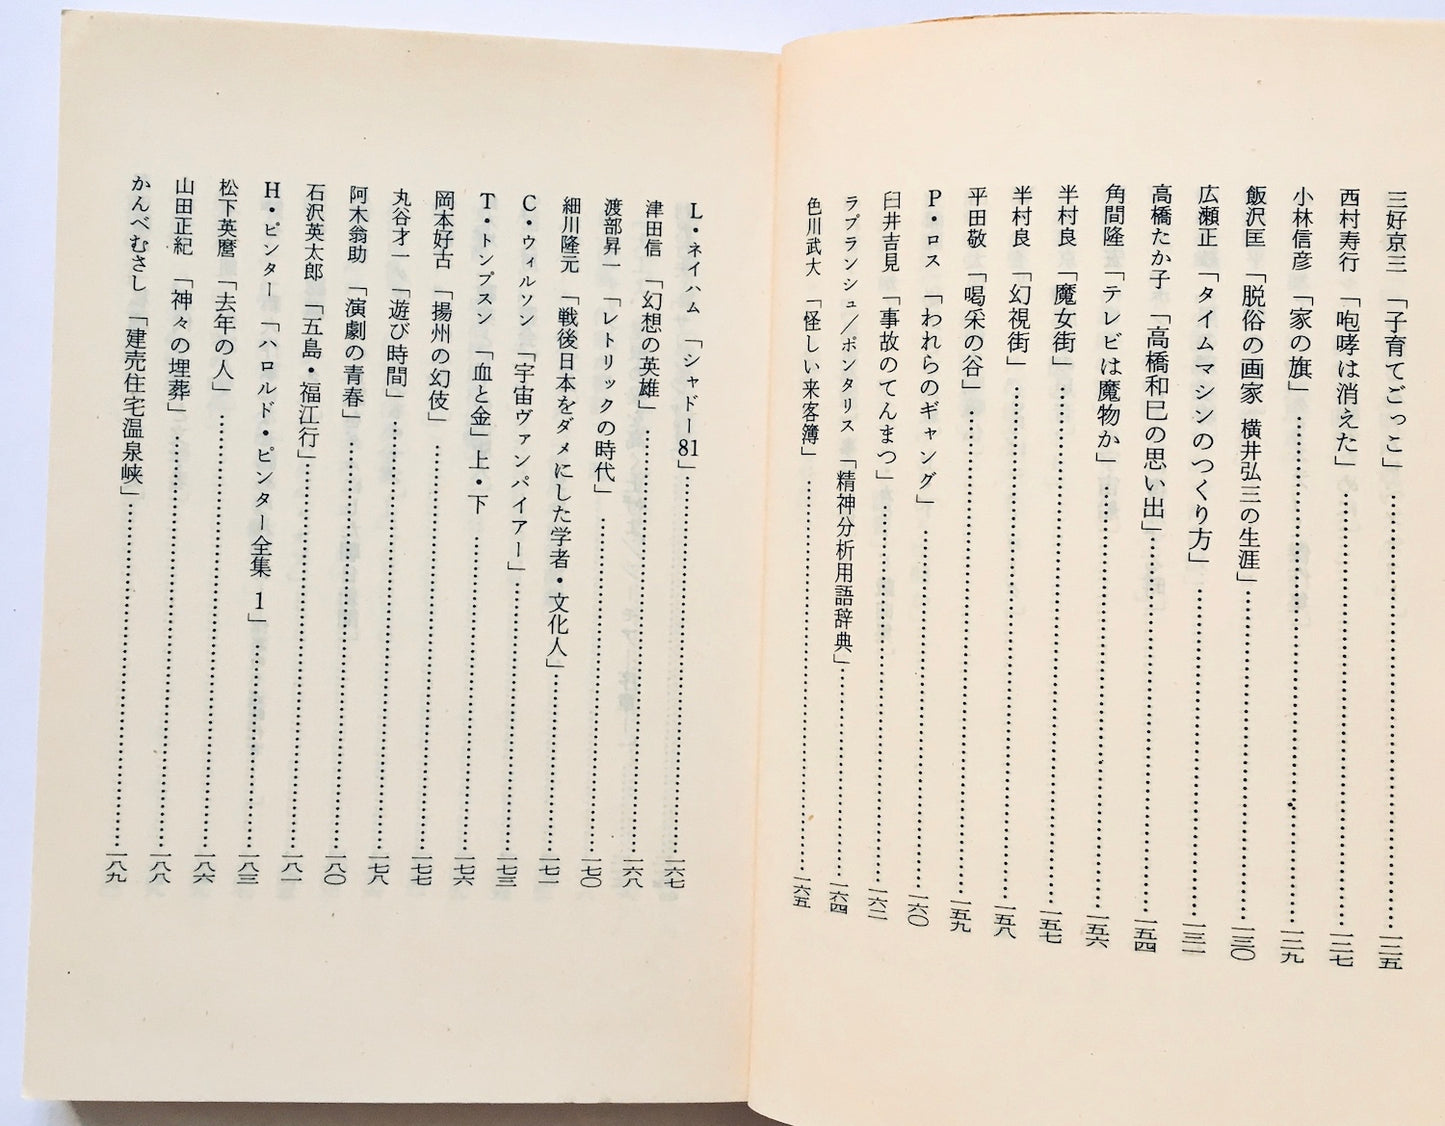 三好京三「子育てごっこ」……一二五
西村寿行「咆哮は消えた」……一二七
小林信彦「家の旗」……一二九
飯沢匡「脱俗の画家 横井弘三の生涯」……一三〇
広瀬正「タイムマシンのつくり方」……一三一
高橋たか子「高橋和巳の思い出」……一五四
角間隆「テレビは魔物か」……一五六
半村良「魔女街」……一五七
半村良「幻視街」……一五八
平田敬「喝采の谷」……一五九
P・ロス「われらのギャング」……一六〇
臼井吉見「事故のてんまつ」……一六二
ラプランシュ/ポンタリス「精神分析用語辞典」……一六四
色川武大「怪しい来客簿」……一六五
L・ネイハム「シャドー81」……一六七
津田信「幻想の英雄」……一六八
渡部昇一「レトリックの時代」……一七〇
細川隆元「戦後日本をダメにした学者・文化人」……一七一
C・ウィルソン「宇宙ヴァンパイアー」……一七三
T・トンプスン「血と金」上・下……一七六
岡本好古「揚州の幻伎」……一七七
丸谷才一「遊び時間」……一七八
阿木翁助「演劇の青春」……一八〇
石沢英太郎「五島・福江行」……一八一
H・ピンター「ハロルド・ピンター全集 1」……一八三
松下英麿「去年の人」……一八六
山田正紀「神々の埋葬」……一八八
かんべむさし「建売住宅温泉峡」……一八九